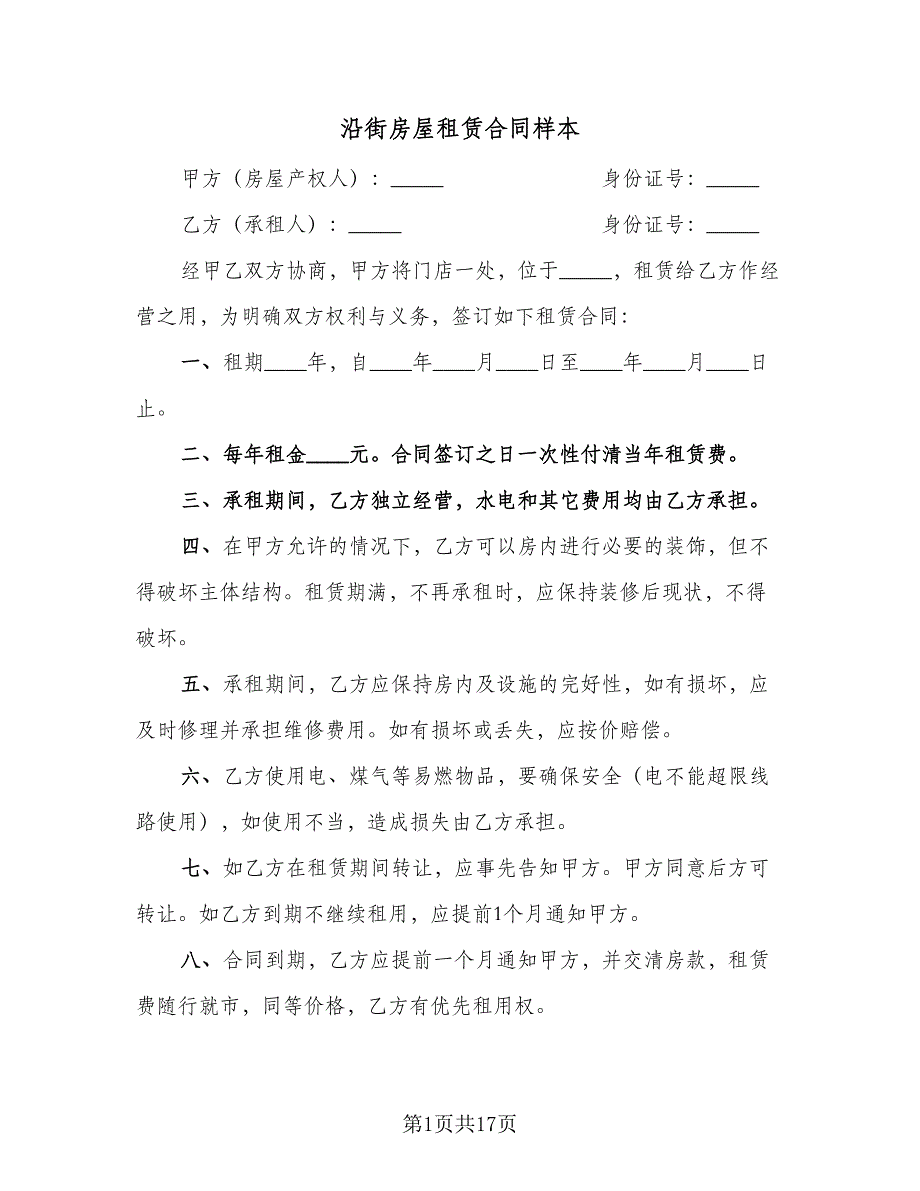 沿街房屋租赁合同样本
甲方（房屋产权人）：_____ 身份证号：_____
乙方（承租人）：_____ 身份证号：_____
经甲乙双方协商，甲方将门店一处，位于_____，租赁给乙方作经
营之用，为明确双方权利与义务，签订如下租赁合同：
一、租期____年，自____年____月____日至____年____月____日
止。
二、每年租金____元。合同签订之日一次性付清当年租赁费。
三、承租期间，乙方独立经营，水电和其它费用均由乙方承担。
四、在甲方允许的情况下，乙方可以房内进行必要的装饰，但不
得破坏主体结构。租赁期满，不再承租时，应保持装修后现状，不得
破坏。
五、承租期间，乙方应保持房内及设施的完好性，如有损坏，应
及时修理并承担维修费用。如有损坏或丢失，应按价赔偿。
六、乙方使用电、煤气等易燃物品，要确保安全（电不能超限线
路使用），如使用不当，造成损失由乙方承担。
七、如乙方在租赁期间转让，应事先告知甲方。甲方同意后方可
转让。如乙方到期不继续租用，应提前1个月通知甲方。
八、合同到期，乙方应提前一个月通知甲方，并交清房款，租赁
费随行就市，同等价格，乙方有优先租用权。
第1页共17页